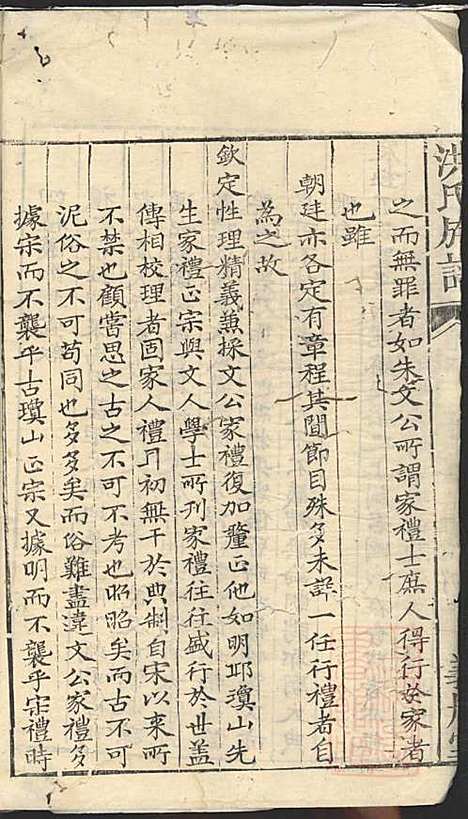 洪氏
之而無罪者如朱文公所謂家禮士庶人得行於家者
也雖
朝廷亦各定有章程其間節目殊多未詳一任行禮者自
為之故
欽定性理精義兼採文公家禮復加釐正他如明邱瓊山先
生家禮正宗與文人學士所刊家禮往往盛行於世蓋
傳相校理者固家人禮耳初無干於典制自宋以來所
不禁也顧嘗思之古之不可不考也昭昭矣而古不可
泥俗之不可苟同也多多矣而俗難盡違文公家禮多
據宋而不襲乎古瓊山正宗又據明而不襲乎宋禮時